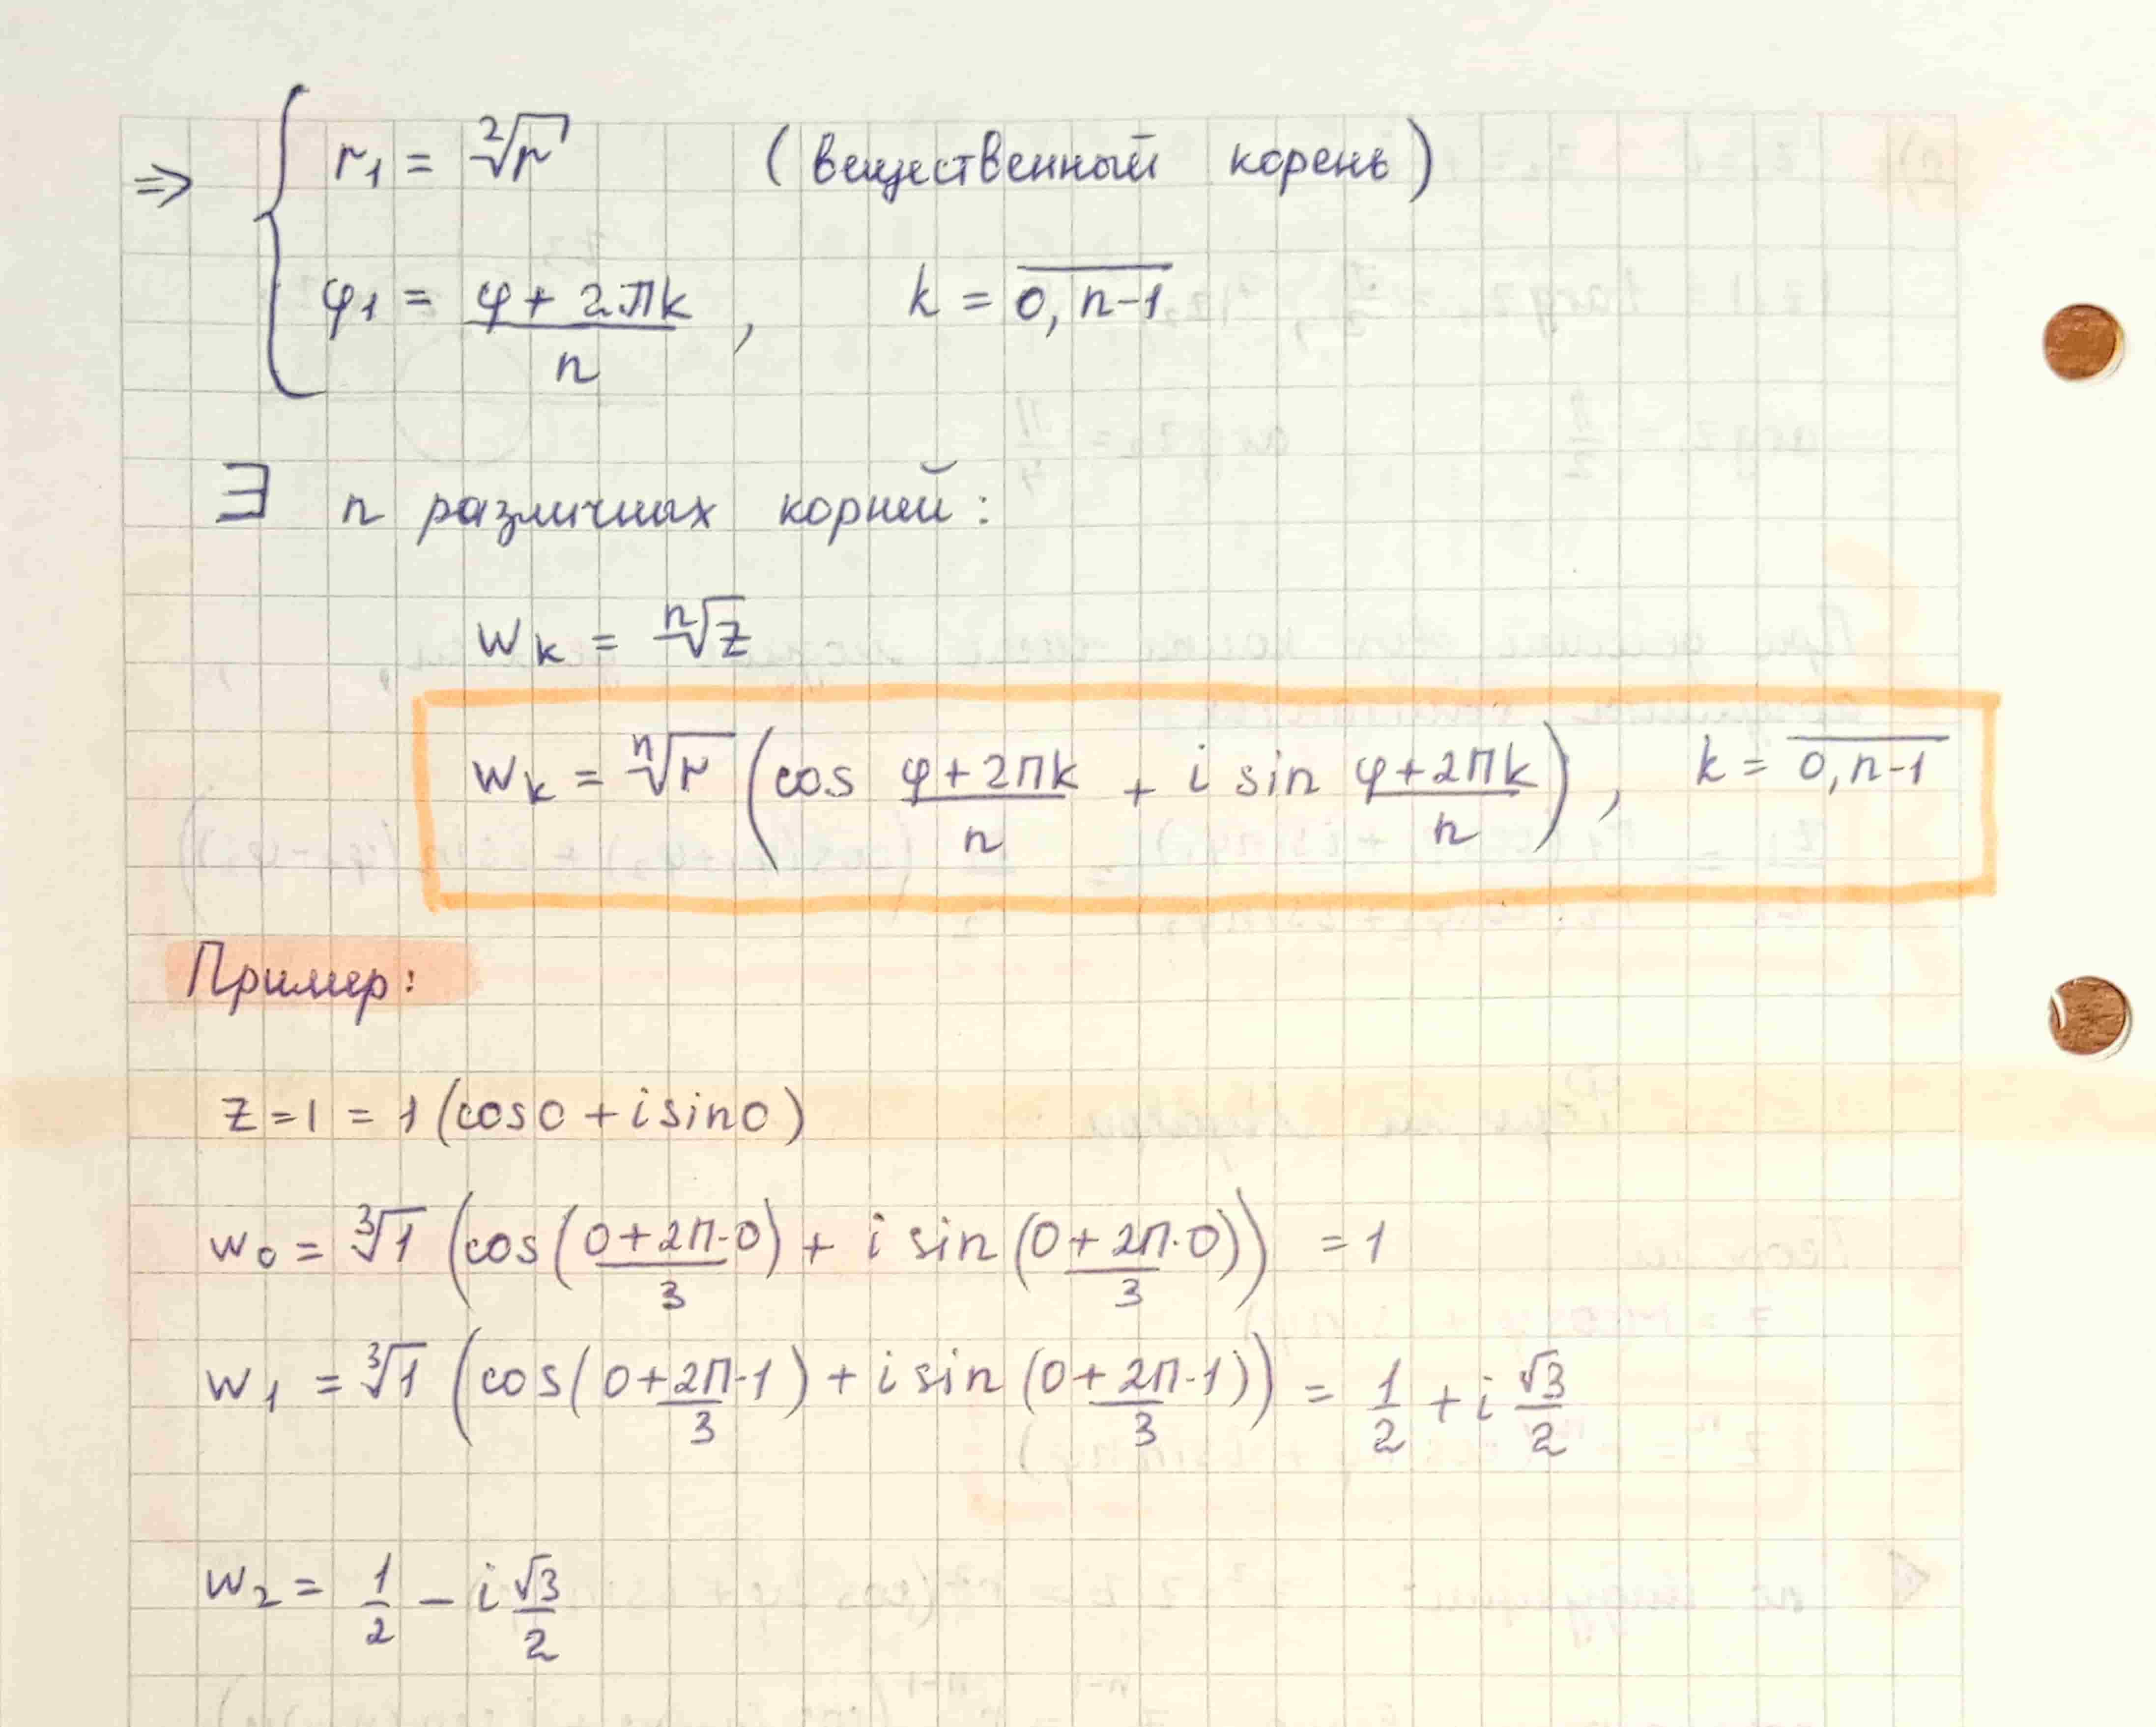 ⇒ { r₁ = ²√r (вещественный корень)
φ₁ = (φ + 2πk)/n , k = \overline{0, n-1}
∃ n различных корней:
w_k = ⁿ√z
w_k = ⁿ√r (cos (φ+2πk)/n + i sin (φ+2πk)/n), k = \overline{0, n-1}
Пример:
z = 1 = 1 (cos0 + i sin0)
w₀ = ³√1 (cos((0+2π·0)/3) + i sin((0+2π·0)/3)) = 1
w₁ = ³√1 (cos((0+2π·1)/3) + i sin((0+2π·1)/3)) = 1/2 + i √3/2
w₂ = 1/2 − i √3/2